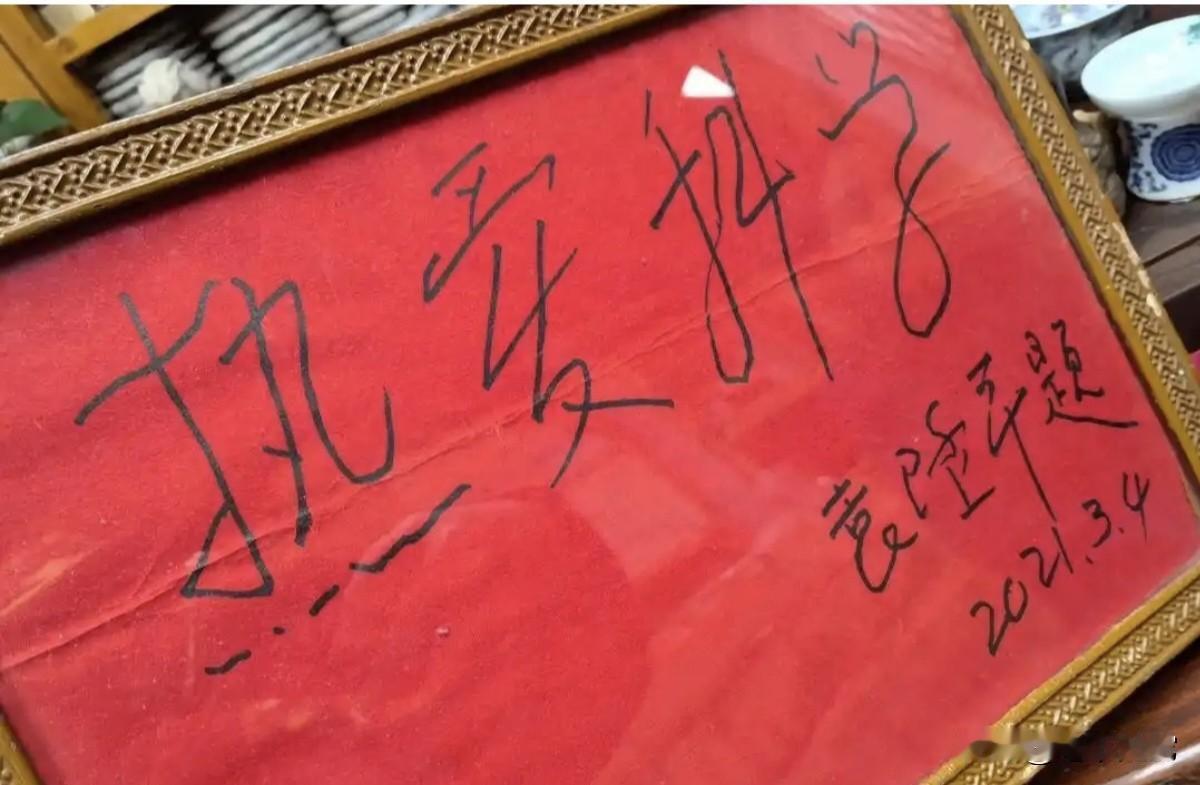 热爱科学
袁隆平题
2021.3.4